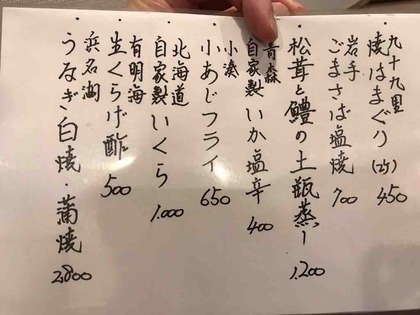 九十九里
焼はまぐり(2ケ) 450
岩手
ごまさば塩焼 700
松茸と鱧の土瓶蒸し 1,200
青森
自家製いか塩辛 400
小湊
小あじフライ 650
北海道
自家製いくら 1,000
有明海
生くらげ酢 500
浜名湖
うなぎ白焼・蒲焼 2,800